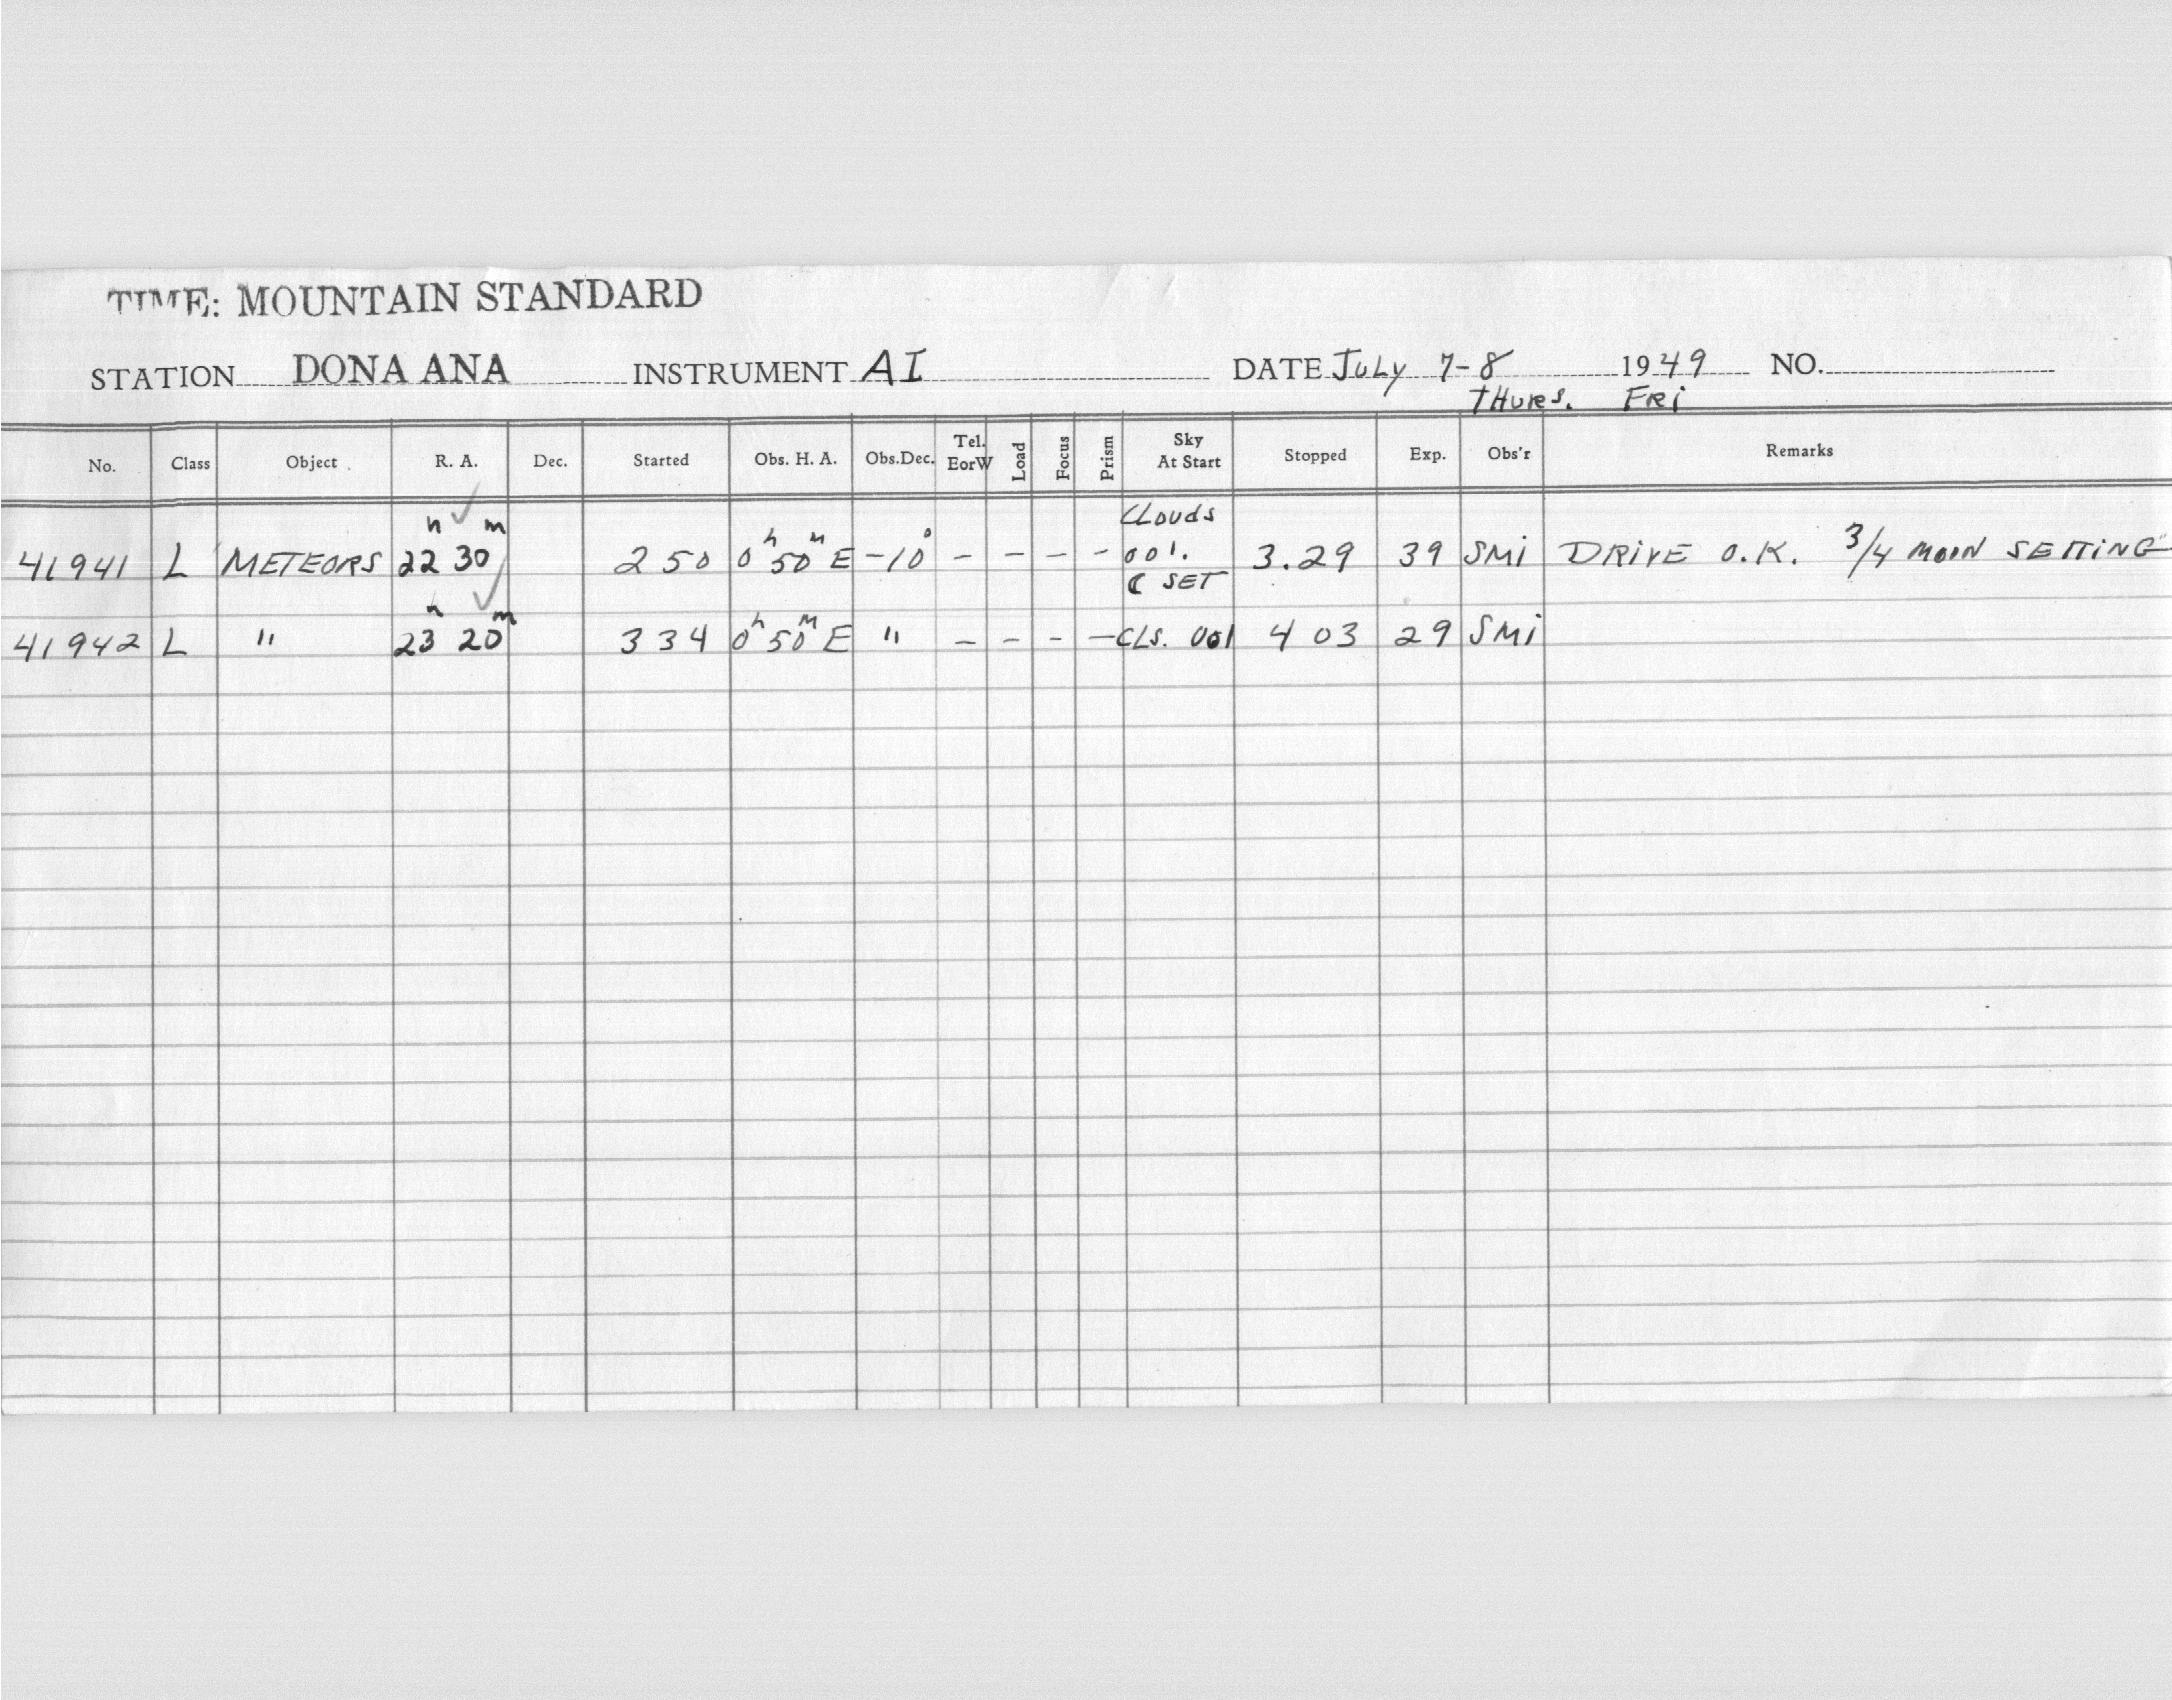 TIME: MOUNTAIN STANDARD
STATION DONA ANA INSTRUMENT AI DATE JULY 7-8 1949 NO.
THURS. FRI
No. Class Object R. A. Dec. Started Obs. H. A. Obs.Dec. Tel. EorW Load Focus Prism Sky At Start Stopped Exp. Obs'r Remarks
41941 L METEORS 22h 30m 250 0h 50m E -10° - - - - CLOUDS 001. ☾ SET 3.29 39 SMi DRIVE O.K. 3/4 MOON SETTING
41942 L " 23h 20m 334 0h 50m E " - - - - CLS. 001 4 03 29 SMi